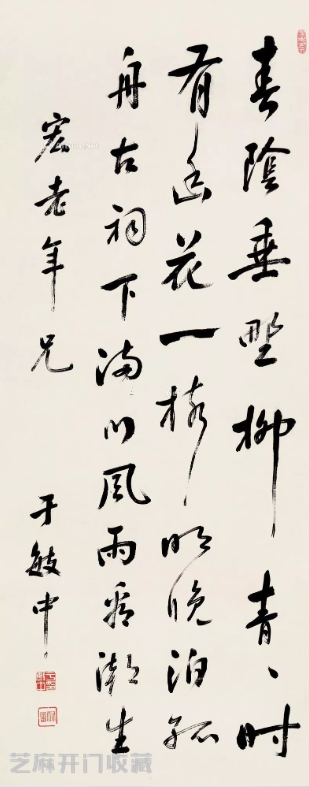 春陰垂野柳青〻时
有幽花一樹明晚泊孤
舟古祠下滿川風雨看潮生
宏老年兄
于敏中
芝麻开门收藏